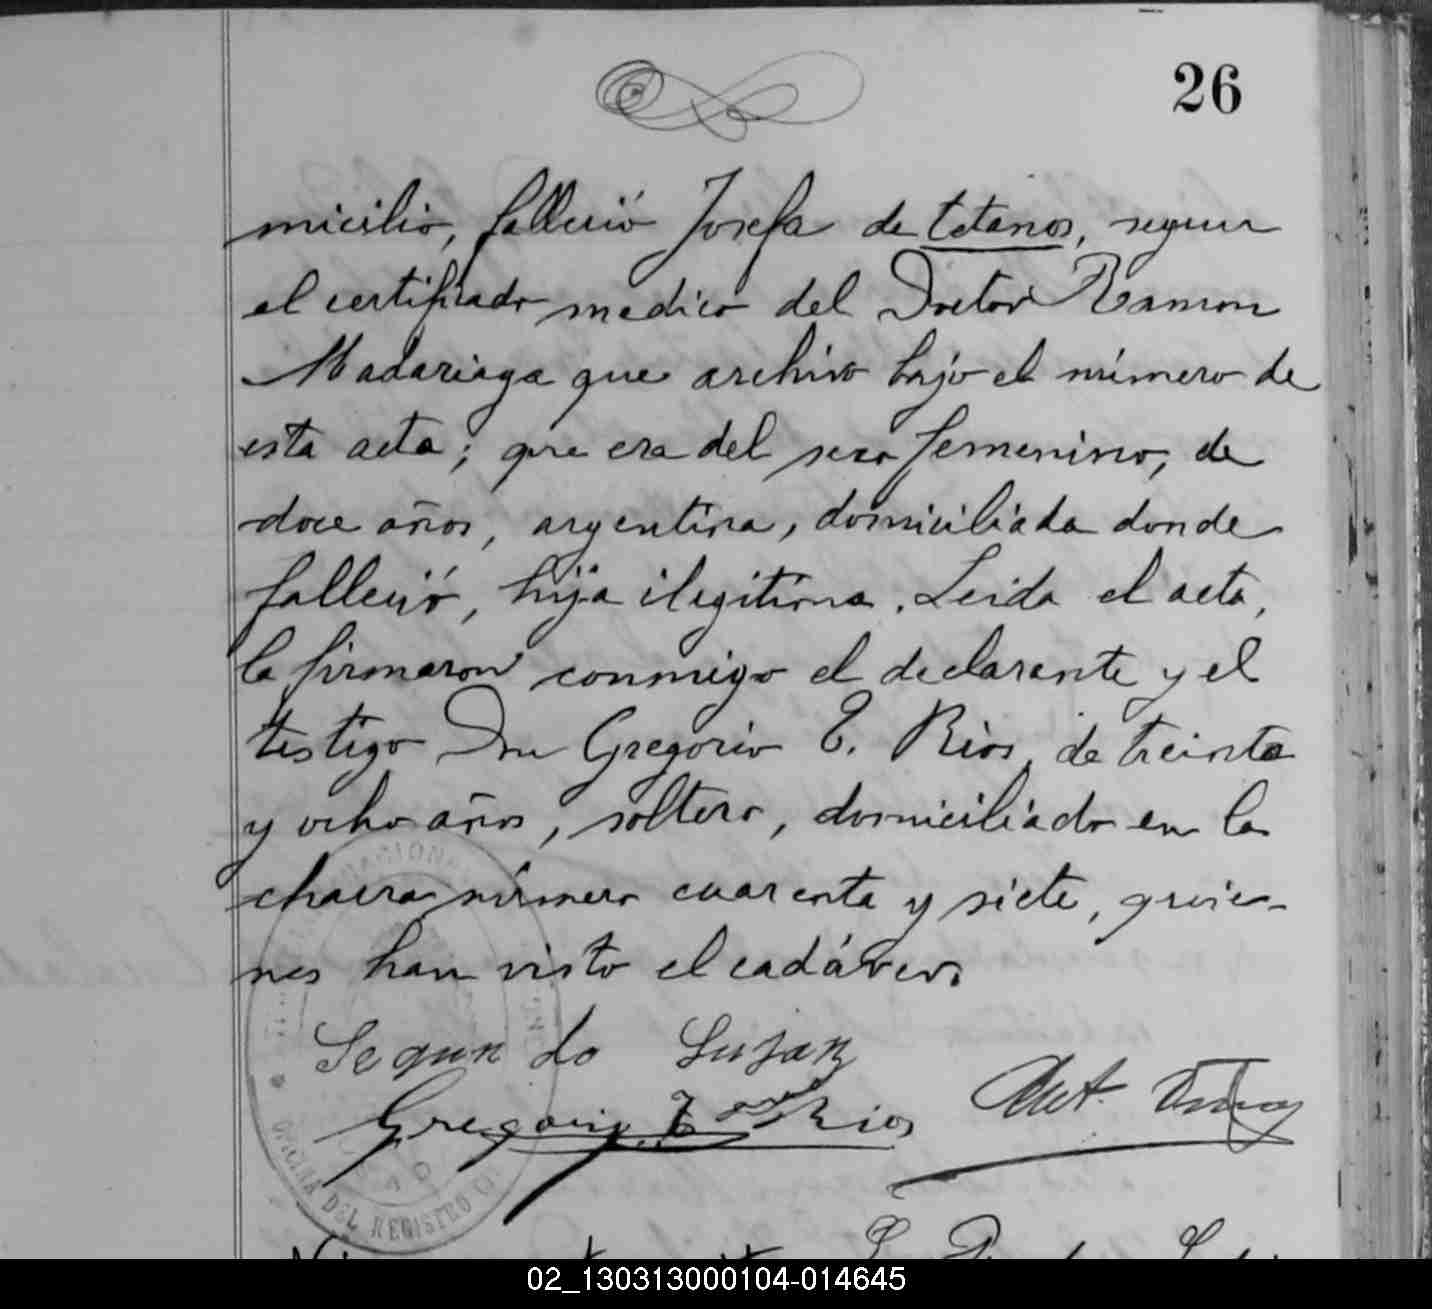 26
micilio, falleció Josefa de tetanos, segun
el certificado medico del Doctor Ramon
Madariaga que archivo bajo el número de
esta acta; que era del sexo femenino, de
doce años, argentina, domiciliada donde
falleció, hija ilegitima. Leida el acta,
la firmaron conmigo el declarante y el
testigo Don Gregorio E. Rios, de treinta
y ocho años, soltero, domiciliado en la
chacra número cuarenta y siete, quie-
nes han visto el cadáver.
Segundo Lujan
Gregorio E Rios
Ant.
OFICINA DEL REGISTRO
02_130313000104-014645